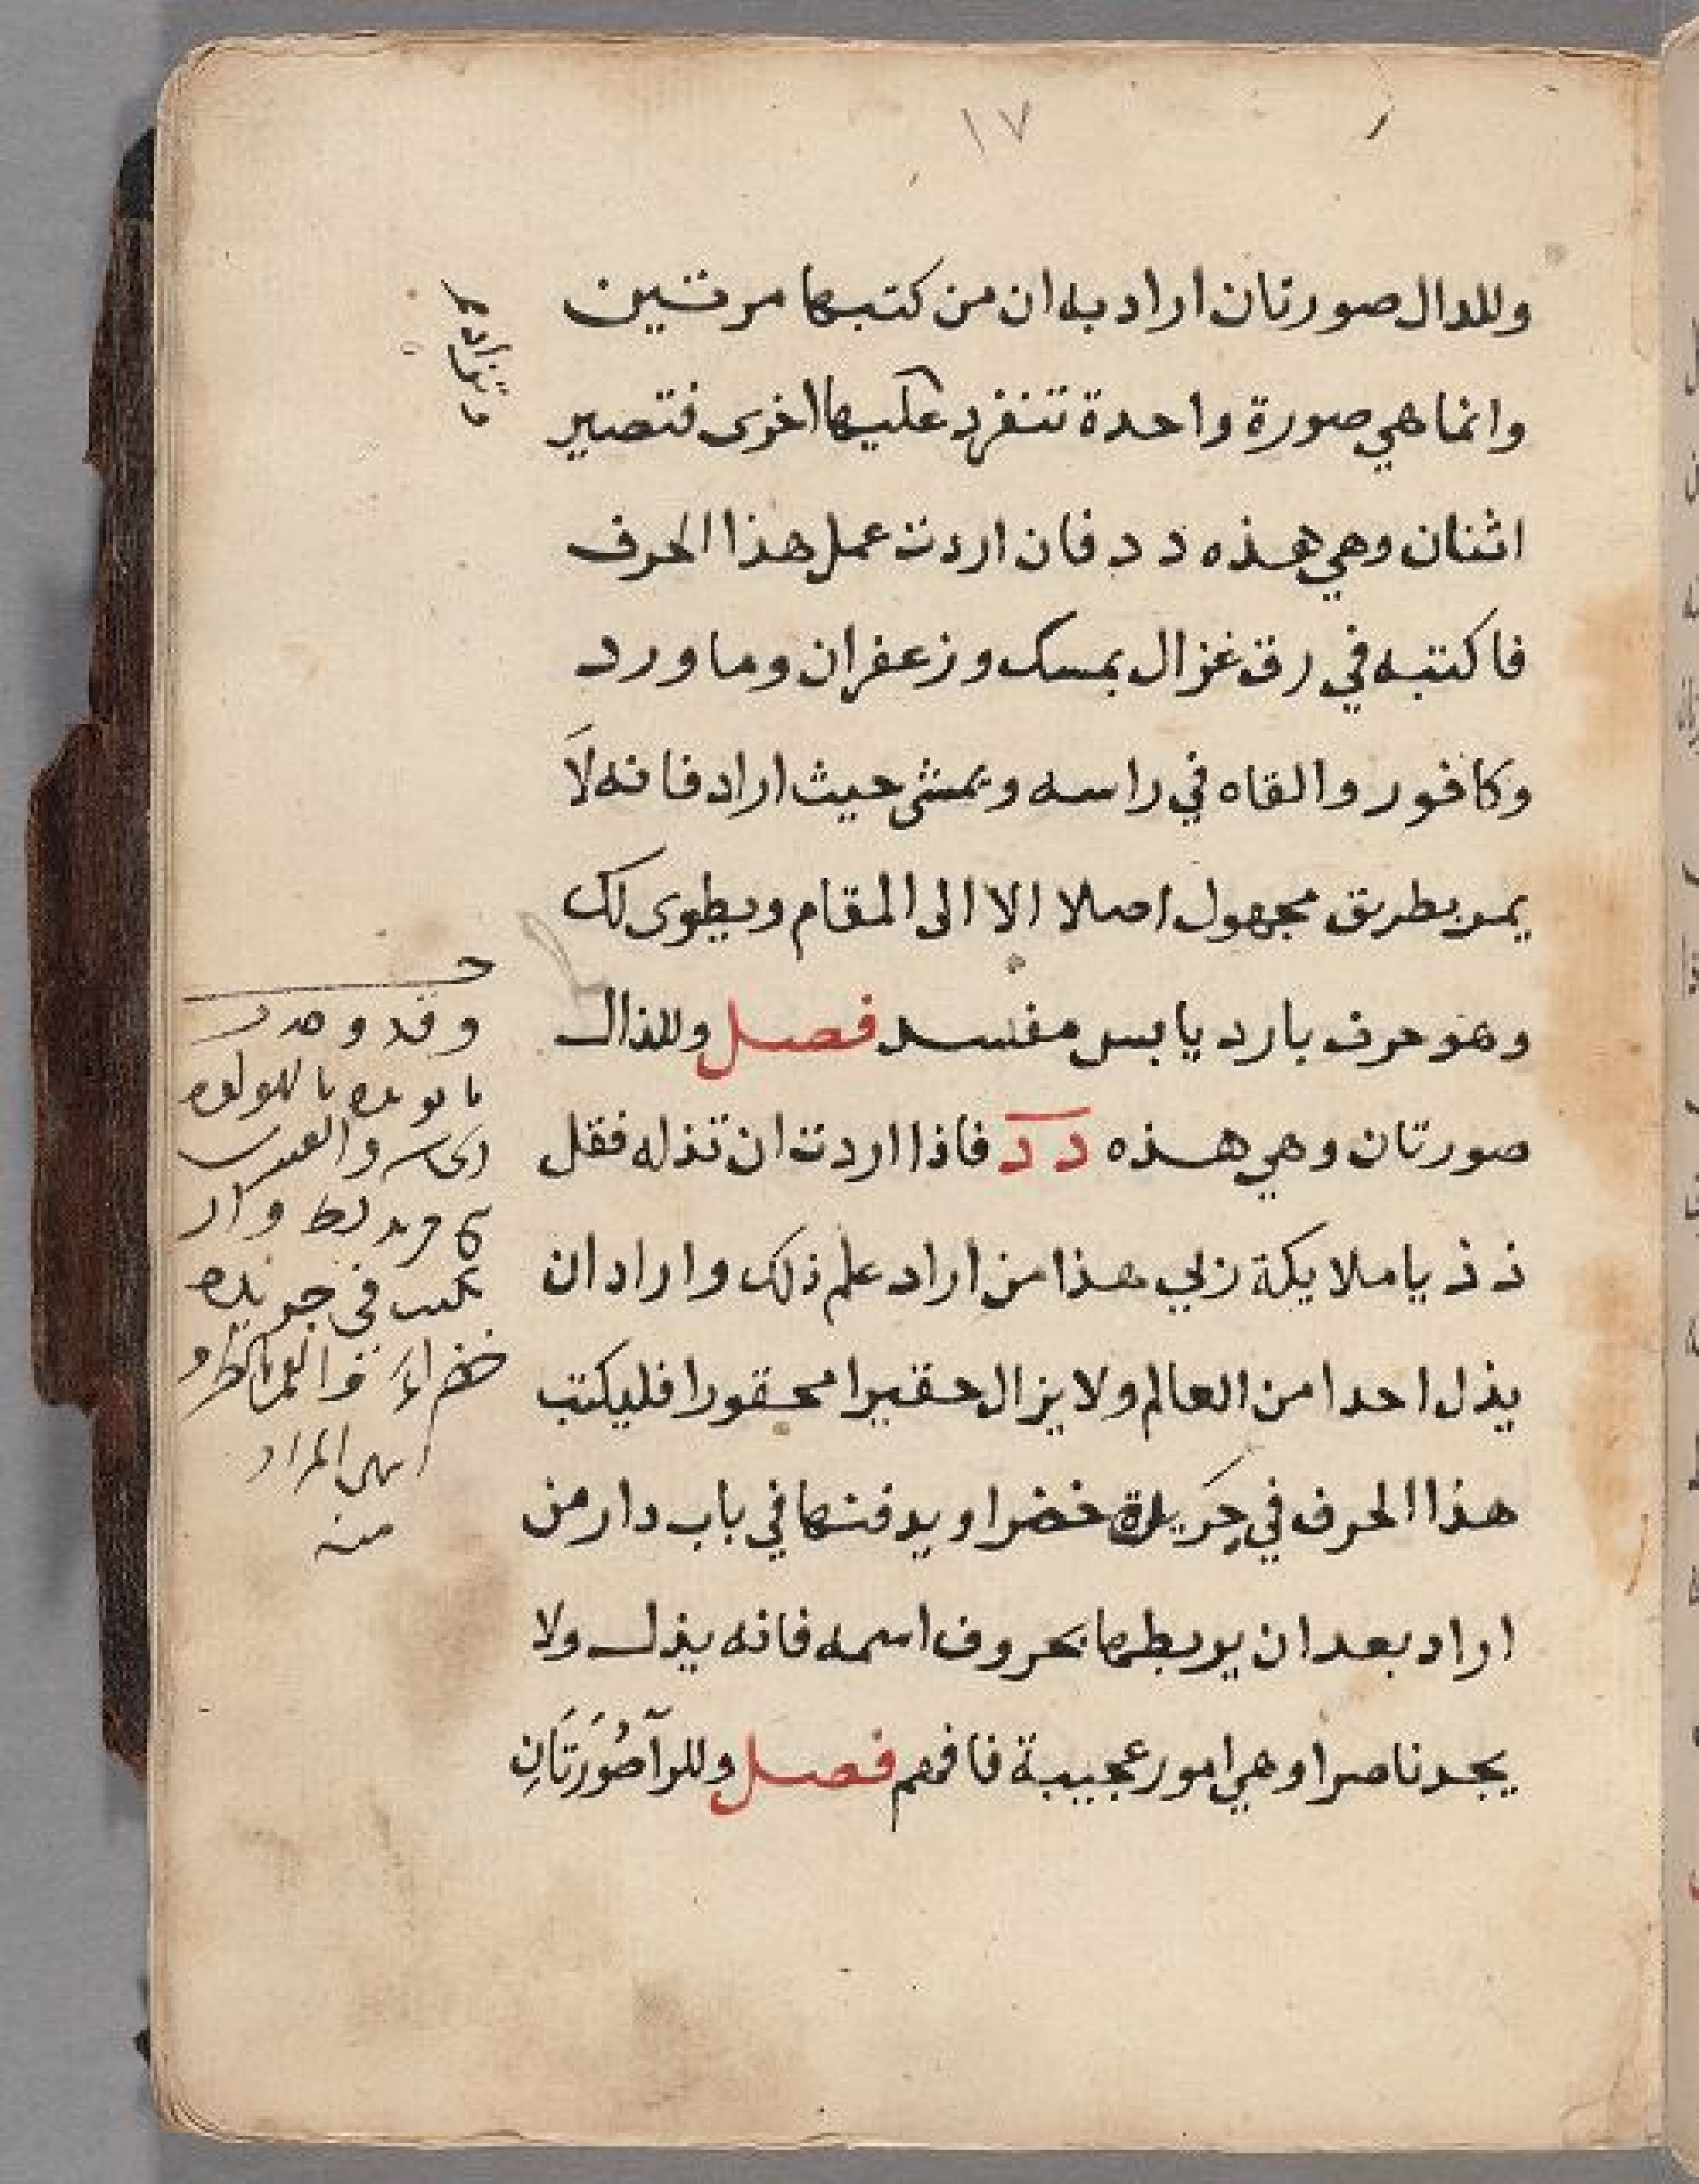 ١٧
وللدال صورتان اراد به ان من كتبها مرتين
وانما هي صورة واحدة تنفرد عليها اخرى فتصير
اثنان وهي هذه د د فان اردت عمل هذا الحرف
فاكتبه في رق غزال بمسك وزعفران وما ورد
وكافور والقاه في راسه ويمشي حيث اراد فانه لا
يمر بطريق مجهول اصلا الا الى المقام ويطوى لك
وهو حرف بارد يابس مفسد فصل وللذال
صورتان وهي هذه د د فاذا اردت ان تذله فقل
ذ ذ يا ملايكة ربي هذا من اراد علم ذلك واراد ان
يذل احدا من العالم ولا يزال حقيرا محقورا فليكتب
هذا الحرف في جريدة خضرا ويدفنها في باب دار من
اراد بعد ان يربطها بحروف اسمه فانه يذل ولا
يجد ناصرا وهي امور عجيبة فافهم فصل وللرآ صُورَتَانِ
وتزاد
وقد وجد
في جريدة
خضراء
المراد
منه